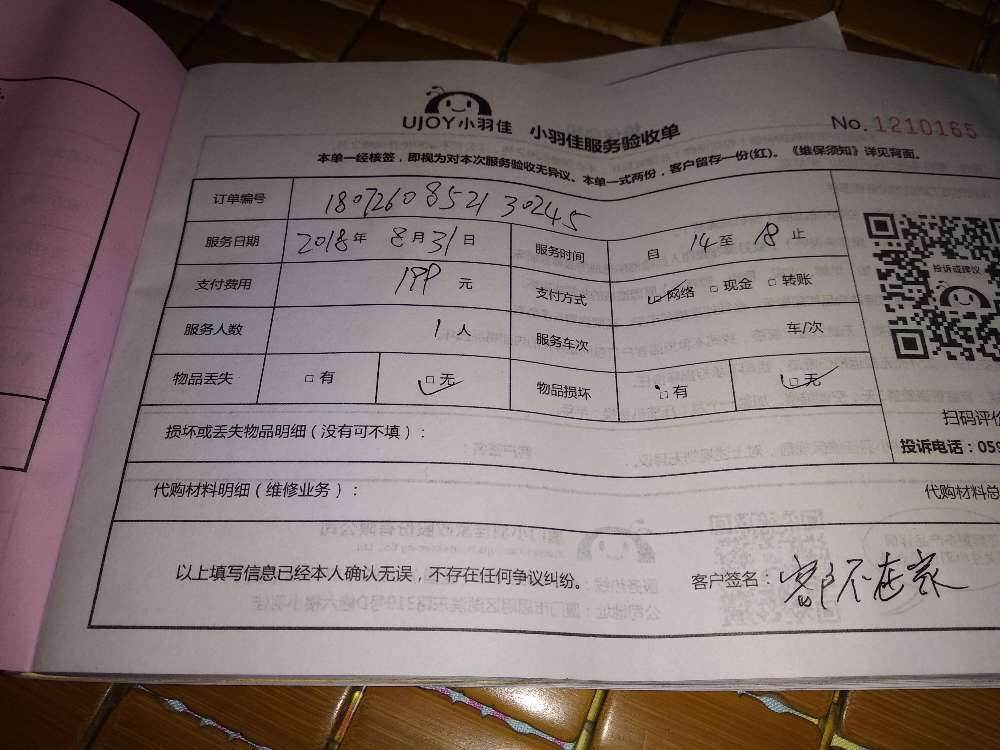 UJOY小羽佳 小羽佳服务验收单 No.1210165
本单一经核签，即视为对本次服务验收无异议。本单一式两份，客户留存一份(红)。《维保须知》详见背面。
订单编号 18072608521 30245
服务日期 2018年 8月31日 服务时间 自 14至 18止
支付费用 199 元 支付方式 □网络 □现金 □转账
服务人数 1人 服务车次 车/次
物品丢失 □有 □无 物品损坏 □有 □无
投诉或建议
扫码评价
损坏或丢失物品明细（没有可不填）：
投诉电话：059
代购材料明细（维修业务）： 代购材料总
以上填写信息已经本人确认无误，不存在任何争议纠纷。 客户签名：客户不在家